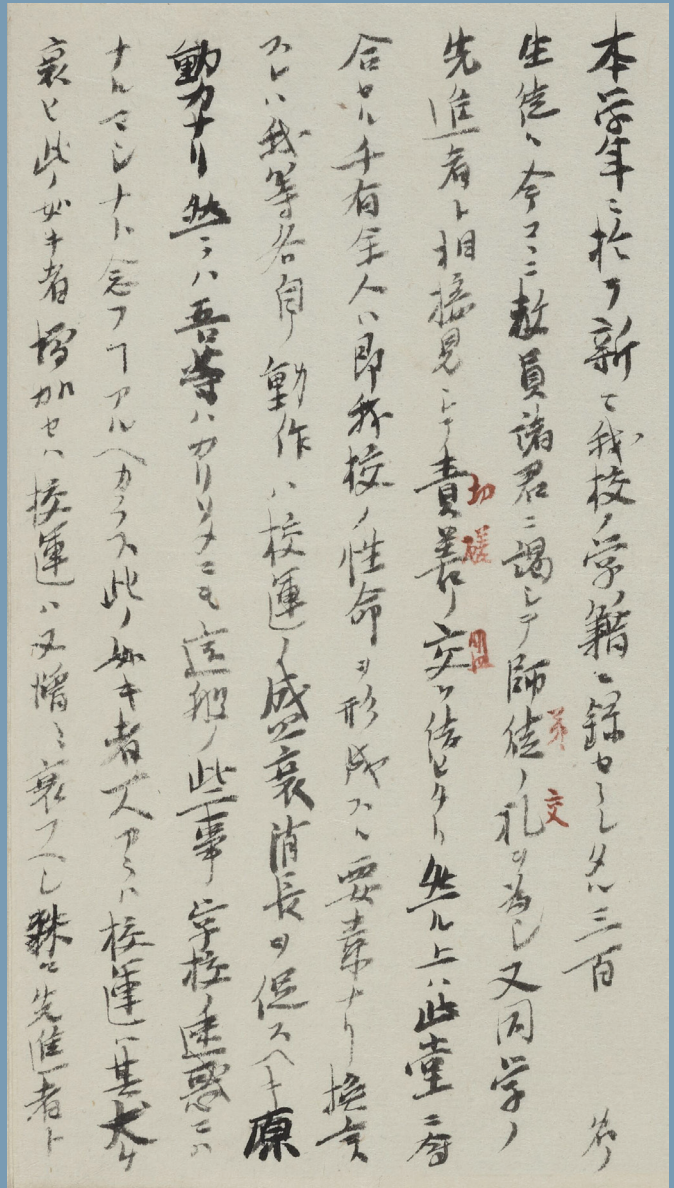 本学年ニ於テ新ニ我校ノ学籍ニ録セラレタル三百 名ノ
生徒ハ今ココニ教員諸君ニ謁シテ師徒ノ礼ヲ為シ又同学ノ
弟 交
先進者ト相接見シテ責善ノ交ヲ結ヒタリ然ル上ハ此堂ニ會
切磋 同
合セル千有余人ハ即我校ノ性命ヲ形成スル要素ナリ換言
スレハ我等各自ノ動作ハ校運ノ盛衰消長ヲ促スヘキ原
動力ナリ然ラハ吾等ハカリソメニモ這般ノ些事ノ学校ノ迷惑ニハ
ナルマシナト念フコアルヘカラス此ノ如キ者一人アラハ校運ハ其丈ケ
衰ヒ此ノ如キ者増加セハ校運ハ又増々衰フヘシ 先進者ト